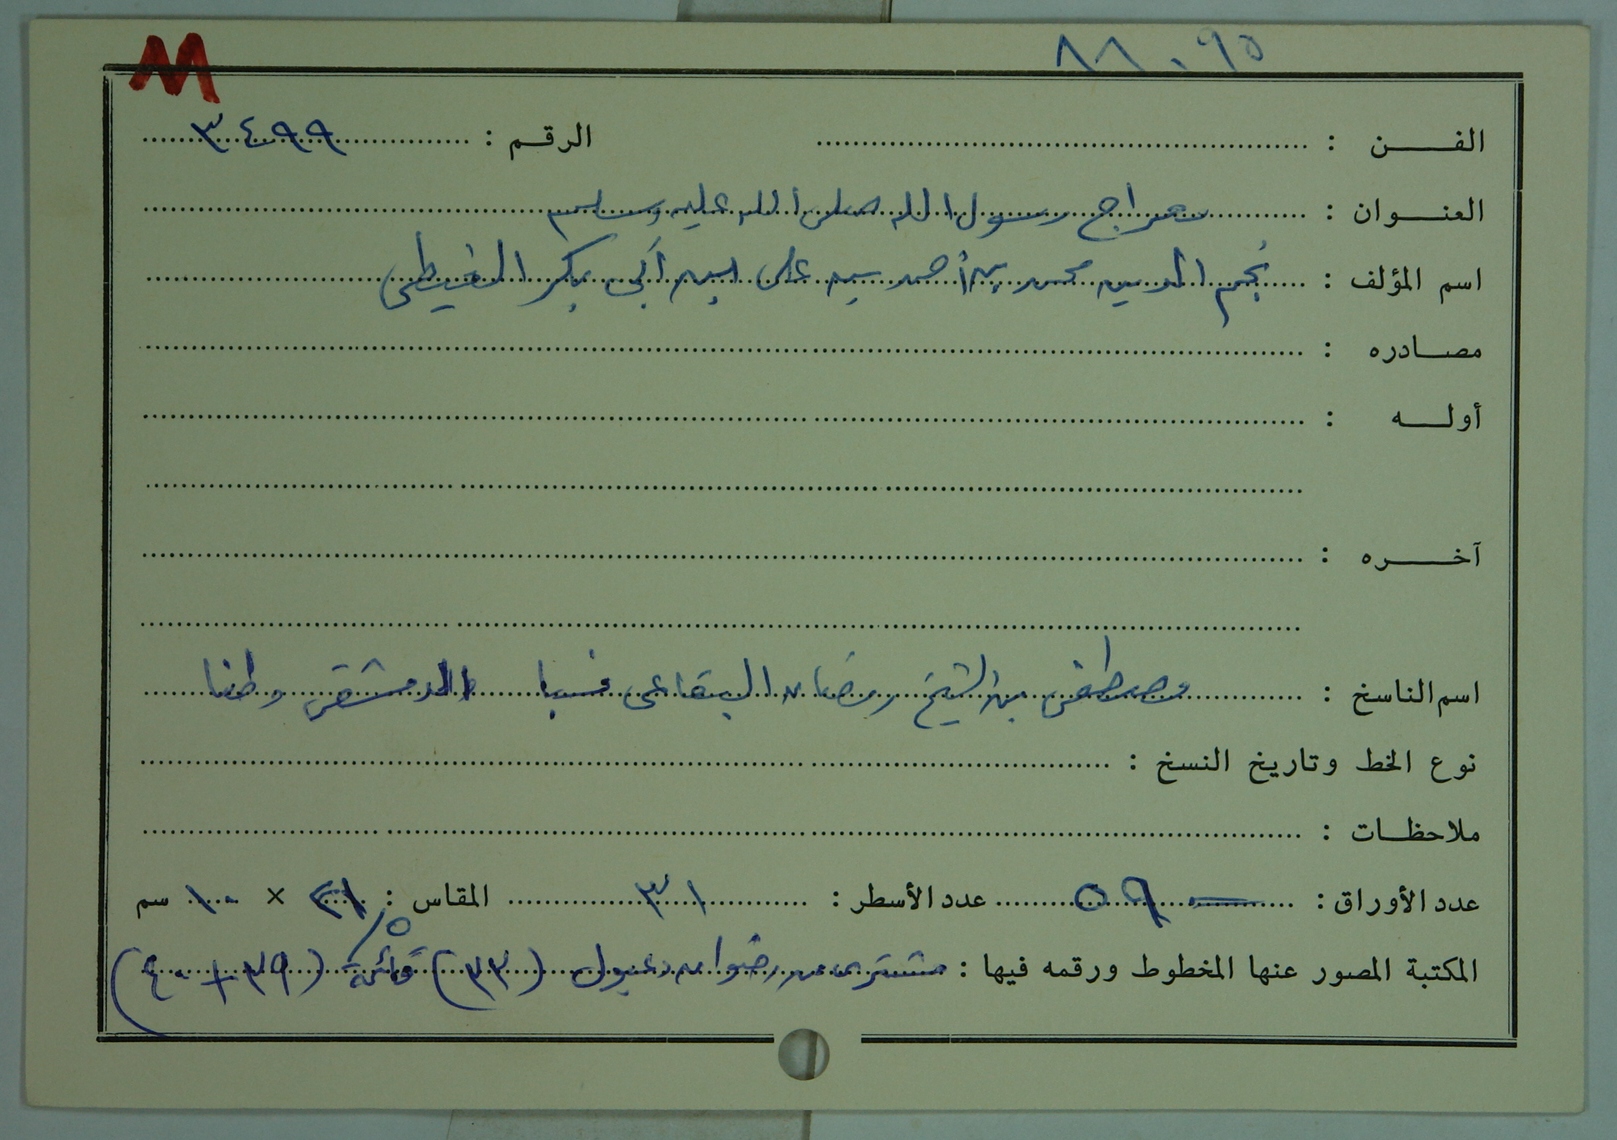 ٨٨٠٩٥
M
الفن : الرقم : ٣٤٩٩
العنوان : معراج رسول الله صلى الله عليه وسلم
اسم المؤلف : نجم الدين محمد بن أحمد بن علي ابن أبي بكر الغيطي
مصادره :
أوله :
آخره :
اسم الناسخ : مصطفى بن الشيخ رمضان البقاعي نسبا الدمشقي وطنا
نوع الخط وتاريخ النسخ :
ملاحظات :
عدد الأوراق : ٥٩ عدد الأسطر : ٣١ المقاس : × ١٠ سم
المكتبة المصور عنها المخطوط ورقمه فيها : مشترى من رضوان دعبول (٣٣) قائمة (٣٩ + ٤٠)